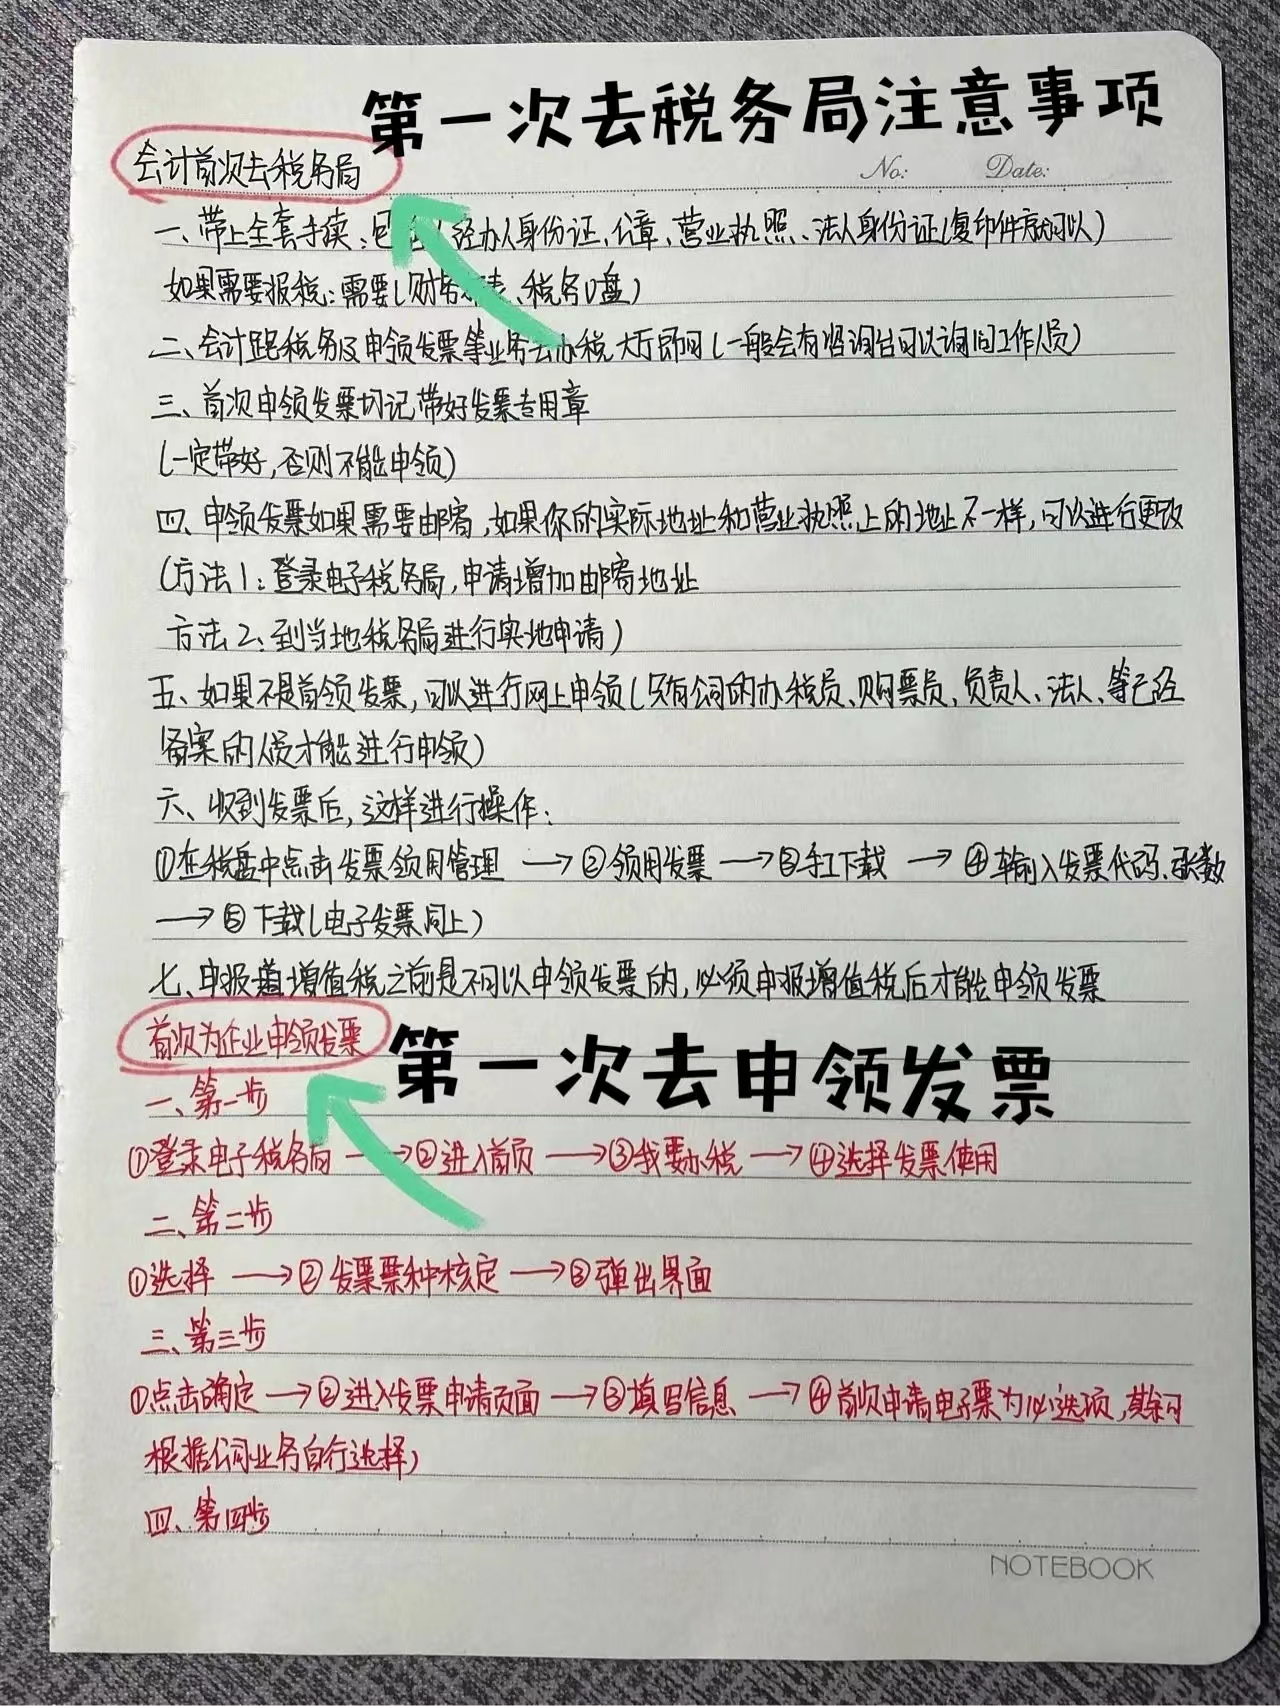 第一次去税务局注意事项
会计首次去税务局
No: Date:
一、带上全套手续:经办人身份证、公章、营业执照、法人身份证(复印件就可以)
如果需要报税:需要(财务表、税务U盘)
二、会计跑税务及申领发票等业务去办税大厅即可(一般会有咨询台可以询问工作人员)
三、首次申领发票切记带好发票专用章
(一定带好,否则不能申领)
四、申领发票如果需要邮寄,如果你的实际地址和营业执照上的地址不一样,可以进行更改
(方法1:登录电子税务局,申请增加邮寄地址
方法2:到当地税务局进行实地申请)
五、如果不是首领发票,可以进行网上申领(只有公司的办税员、购票员、负责人、法人、等已经
备案的人员才能进行申领)
六、收到发票后,这样进行操作:
①在税盘中点击发票领用管理→②领用发票→③手工下载→④输入发票代码、张数
→⑤下载(电子发票同上)
七、申报增值税之前是不可以申领发票的,必须申报增值税后才能申领发票
首次为企业申领发票
第一次去申领发票
一、第一步
①登录电子税务局→②进入首页→③我要办税→④选择发票使用
二、第二步
①选择→②发票票种核定→③弹出界面
三、第三步
①点击确定→②进入发票申请页面→③填写信息→④首次申请电子票为必选项,其余可
根据公司业务自行选择)
四、第四步
NOTEBOOK